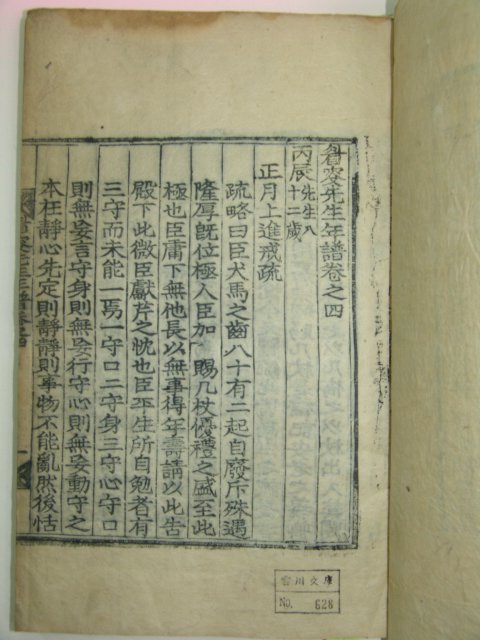 眉叟先生年譜卷之四
丙辰先生八十二歲
正月上進戒疏
疏略曰臣犬馬之齒八十有二起自廢斥殊遇
隆厚旣位極人臣加 賜几杖優禮之盛至此
極也臣庸下無他長以無事得年壽請以此告
殿下此微臣獻芹之忱也臣平生所自勉者有
三守而未能一焉一守口二守身三守心守口
則無妄言守身則無妄行守心則無妄動守之
本在靜心先定則靜靜則事物不能亂然後恬
川文庫
No. 628